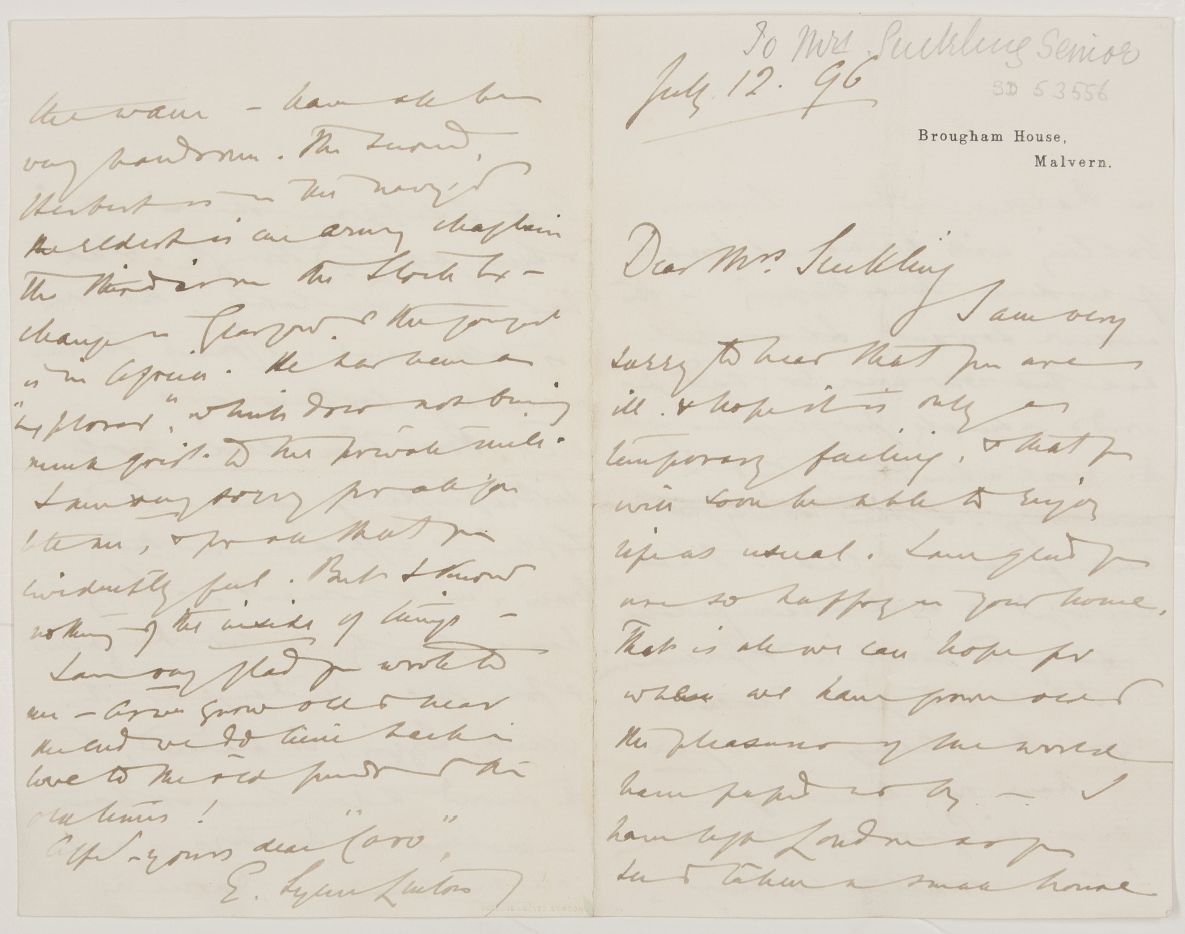 To Mrs Suckling Senior
SD 53556
July. 12. 96
Brougham House,
Malvern.
Dear Mrs. Suckling
I am very
sorry to hear that you are
ill. & hope it is only a
temporary failing, & that you
will soon be able to enjoy
life as usual. I am glad you
are so happy in your home.
That is all we can hope for
when we have grown old &
the pleasures of the world
have passed us by — I
have left London as you
see & taken a small house
the same — have all been
very handsome. The second,
Herbert is in the navy; &
the eldest is an army chaplain
the third is on the Stock Ex-
change in Glasgow & the youngest
is in Africa. He has been an
"explorer", which does not bring
much grist to the private mill.
I am very sorry for all you
tell me, & for all that you
evidently feel. But I know
nothing of the inside of things —
I am very glad you wrote to
me — As we grow old & near
the end we do turn back in
love to the old friends & the
old times!
Affly yours dear "Caro",
E. Lynn Linton